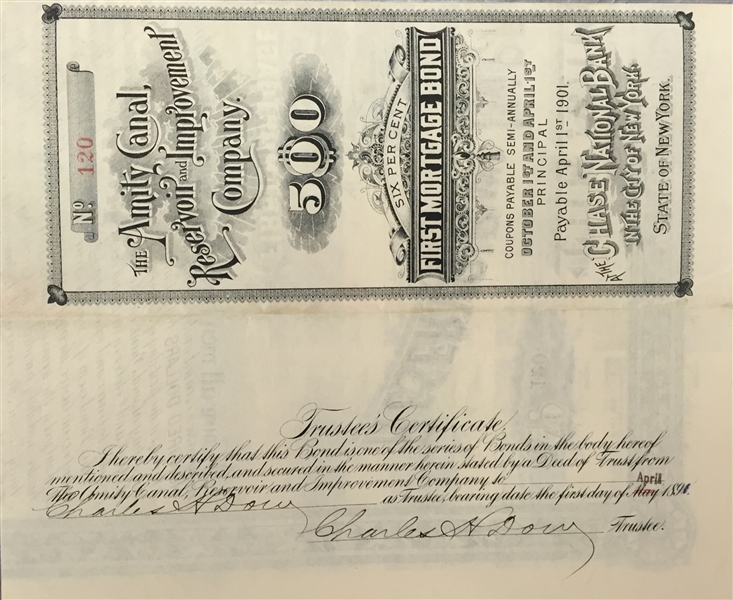 No. 120
THE Amity Canal,
Reservoir and Improvement
Company.
$500
SIX PER CENT
FIRST MORTGAGE BOND
COUPONS PAYABLE SEMI-ANNUALLY
OCTOBER 1ST AND APRIL 1ST
PRINCIPAL
Payable April 1ST 1901.
AT THE CHASE NATIONAL BANK
IN THE CITY OF NEW YORK.
STATE OF NEW YORK.
Trustee's Certificate.
I hereby certify that this Bond is one of the series of Bonds in the body hereof
mentioned and described, and secured in the manner herein stated by a Deed of Trust from
The Amity Canal, Reservoir and Improvement Company to
April
Charles H Dow as Trustee, bearing date the first day of May 1891.
Charles H Dow Trustee.